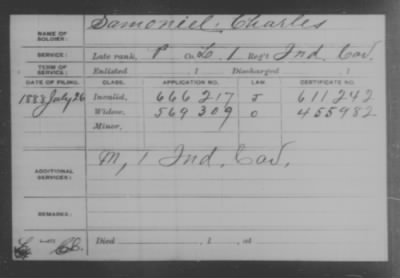 NAME OF SOLDIER: Samoniel, Charles
SERVICE: Late rank, P Co. L, 1 Reg't Ind. Cav.
TERM OF SERVICE: Enlisted , 1 Discharged , 1
DATE OF FILING. CLASS. APPLICATION NO. LAW. CERTIFICATE NO.
1888 July 26 Invalid, 666217 J 611242
Widow, 569309 O 455982
Minor,
ADDITIONAL SERVICES: M, 1 Ind. Cav.
REMARKS:
Died , 1 , at